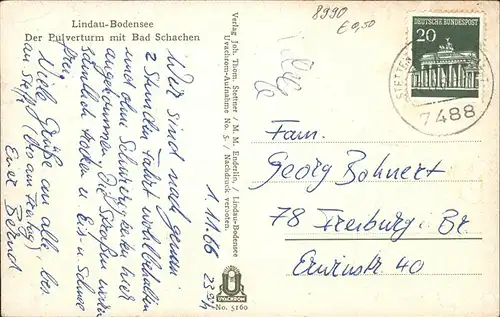 Lindau-Bodensee
Der Pulverturm mit Bad Schachen
Wir sind nach genau
2 Stunden Fahrt wohlbehalten
und ohne Schwierigkeiten hier
angekommen. Die Straßen waren
sämtlich trocken u. Eis- u. Schnee
frei.
Viele Grüße an alle, bes.
an Steffi (bis am Freitag)
Euer Bernd
1. 11. 66 23 54
Verlag Joh. Thom. Stettner / M. M. Enderlin, Lindau-Bodensee
Uvachrom-Aufnahme No. 5. / Nachdruck verboten.
UVACHROM
No. 5160
8990
€ 0,50
DEUTSCHE BUNDESPOST
20
STETTEN
7488
Fam.
Georg Bohnert
78 Freiburg. Br.
Erwinstr. 40